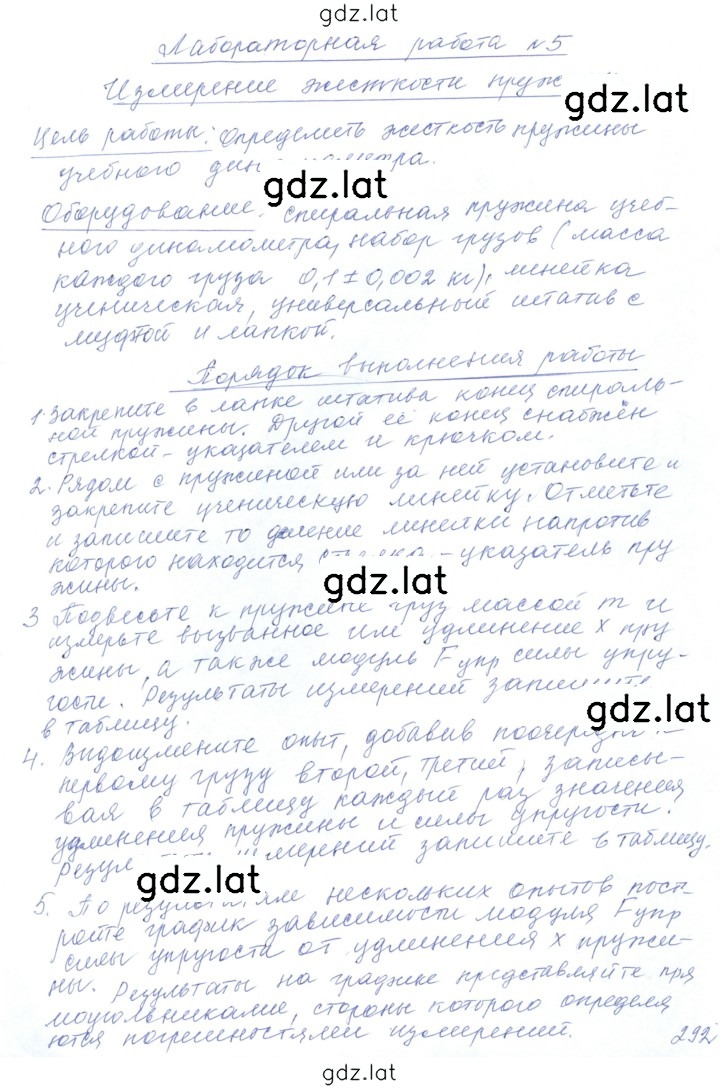 gdz.lat
Лабораторная работа №5
Измерение жесткости пруж
gdz.lat
Цель работы: определить жесткость пружины
учебного
gdz.lat
Оборудование: спиральная пружина учеб-
ного динамометра, набор грузов (масса
каждого груза 0,1±0,002 кг), линейка
ученическая, универсальный штатив с
муфтой и лапкой.
Порядок выполнения работы
1. Закрепите в лапке штатива конец спираль-
ной пружины. Другой её конец снабжён
стрелкой-указателем и крючком.
2. Рядом с пружиной или за ней установите и
закрепите ученическую линейку. Отметьте
и запишите то деление линейки напротив
которого находится -указатель пру
жины.
gdz.lat
3 Подвесьте к пружине груз массой m и
измерьте вызванное им удлинение x пру
жины, а также модуль Fупр силы упру-
гости. Результаты измерений запишите
в таблицу.
gdz.lat
4. Видоизмените опыт, добавив поочерёдно
первому грузу второй, третий, записы-
вая в таблицу каждый раз значения
удлинения пружины и силы упругости.
Резул мерений запишите в таблицу.
gdz.lat
5. По нескольких опытов пост-
ройте график зависимости модуля Fупр
силы упругости от удлинения x пружи-
ны. Результаты на графике представляйте пря
моугольниками, стороны которого определя
ются погрешностями измерений.
292
gdz.lat